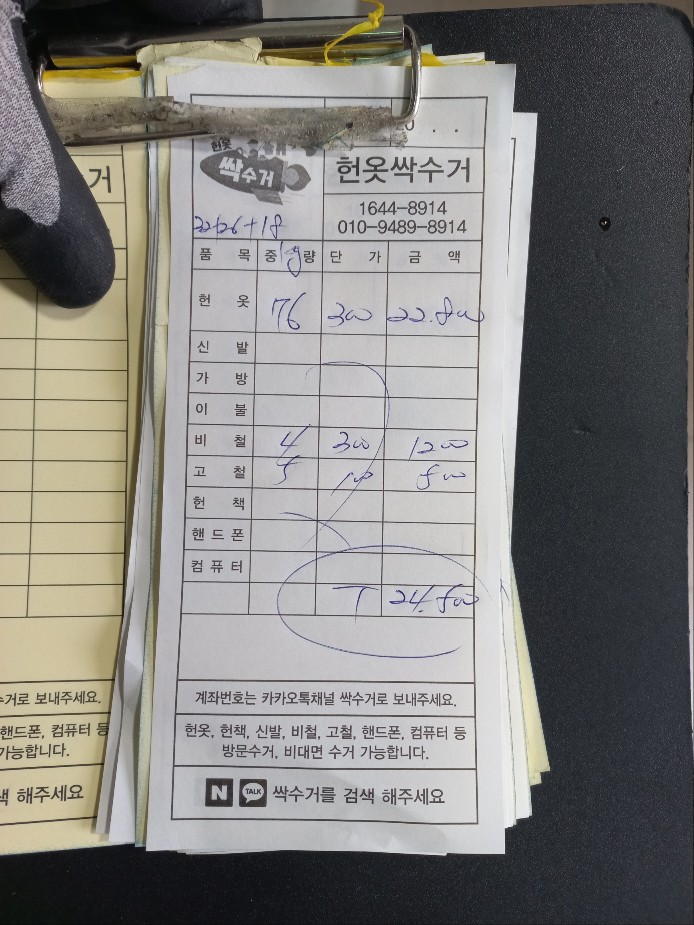 헌옷
싹수거
헌옷싹수거
1644-8914
010-9489-8914
22+26+18
품 목 중 량 단 가 금 액
kg
헌 옷 76 300 22.800
신 발
가 방
이 불
비 철 4 300 1200
고 철 5 100 500
헌 책
핸드폰
컴퓨터
T 24.500
계좌번호는 카카오톡채널 싹수거로 보내주세요.
헌옷, 헌책, 신발, 비철, 고철, 핸드폰, 컴퓨터 등
방문수거, 비대면 수거 가능합니다.
N TALK 싹수거를 검색 해주세요
거
수거로 보내주세요.
핸드폰, 컴퓨터 등
가능합니다.
색 해주세요